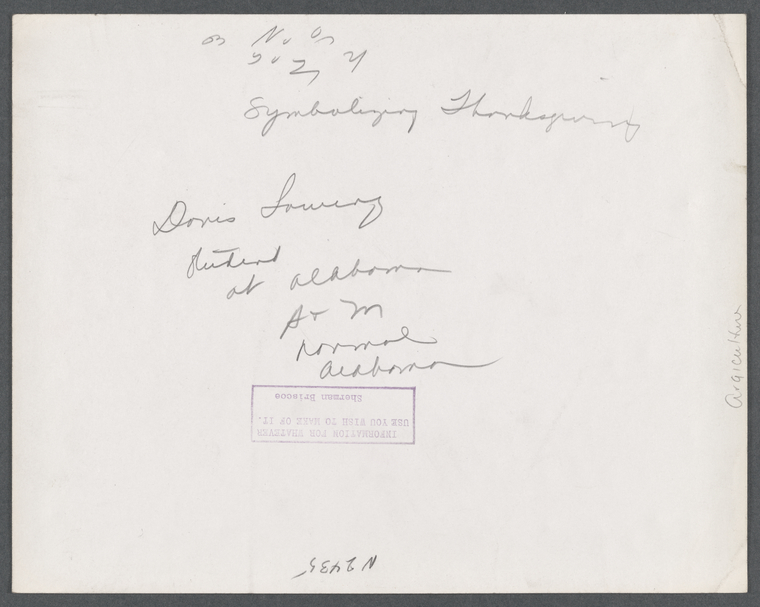 Symbolizing Thanksgiving
Doris Lowery
Student
at Alabama
A + M
normal
alabama
INFORMATION FOR WHATEVER
USE YOU WISH TO MAKE OF IT.
Sherman Briscoe
N 2435
argiculture